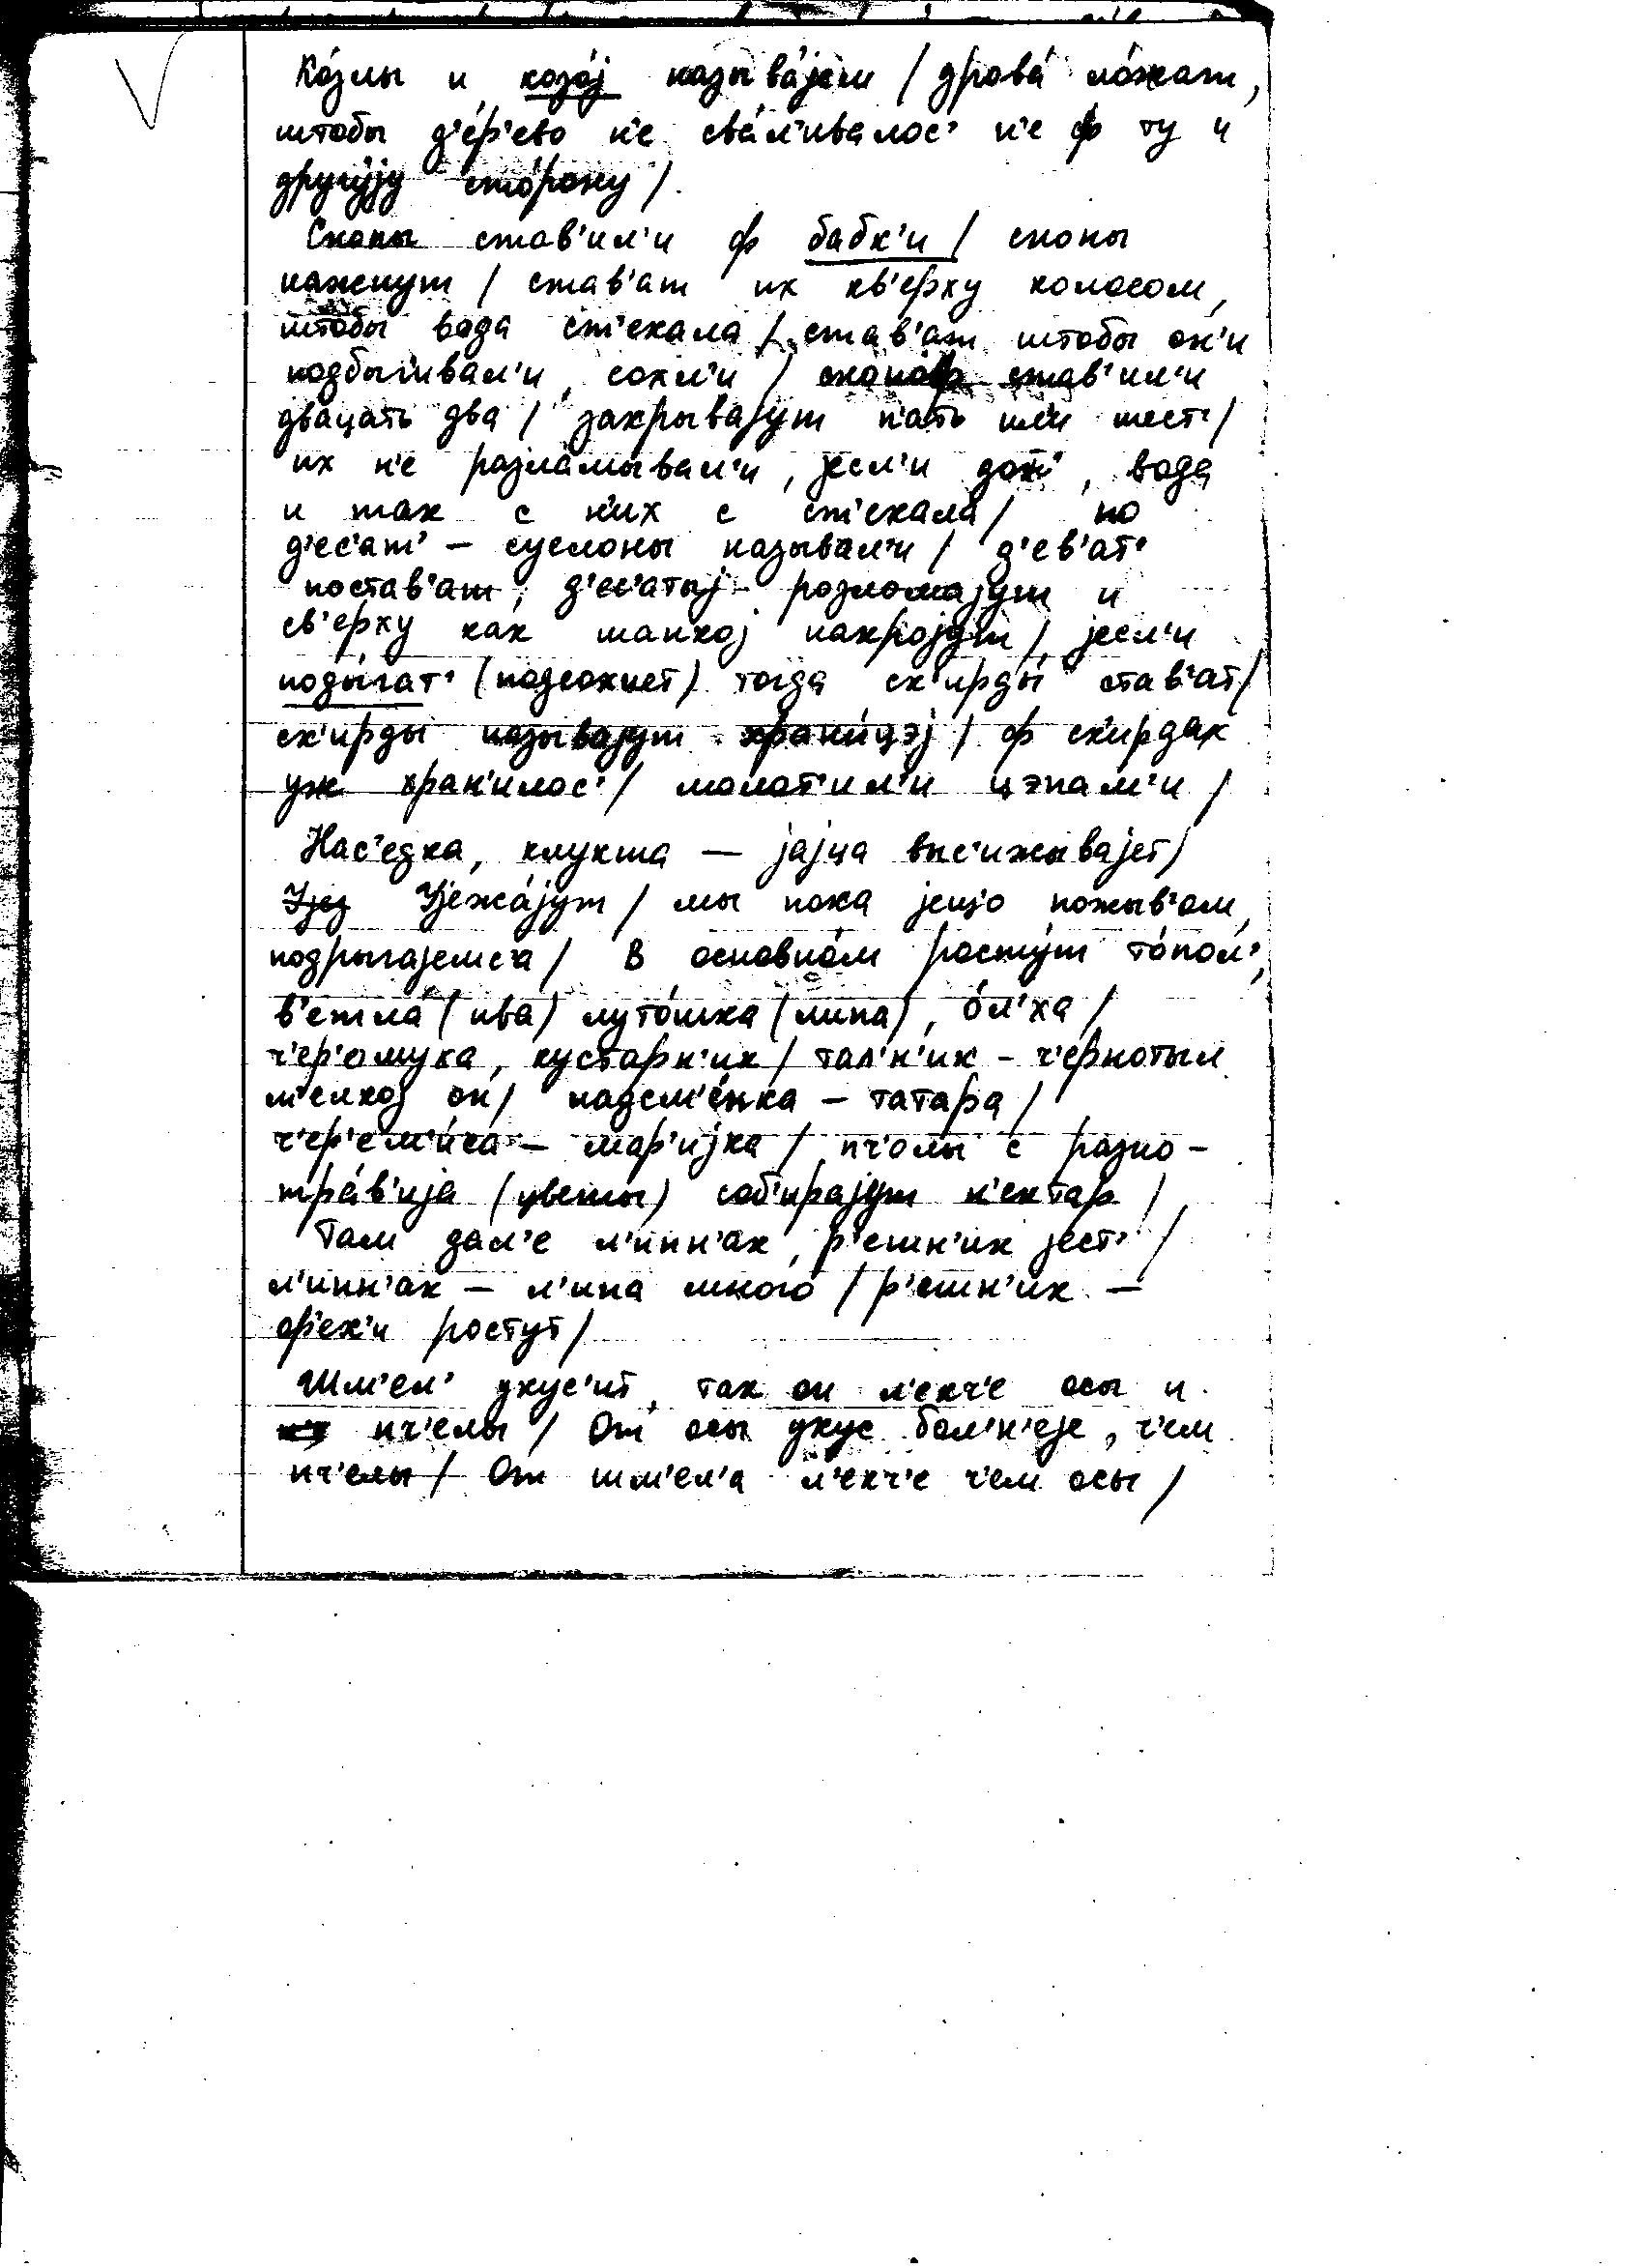 Ко́злы и козо́j называ́jем / дрова́ ло́жат,
штобы д'е́р'ево н'е сва́л'ивалос' н'е ф ту и
другу́jу сто́рону /.
Снопы став'ил'и ф бабк'и / снопы
нажнут / став'ат их кв'ерху колосом,
штобы вода ст'екала / став'ат штобы он'и
подбыгивал'и, сохл'и / снопоф став'ил'и
двацать два / закрываjут п'ать или шест' /
их н'е разла́мывал'и, jесл'и дож', вода
и так с н'их с ст'екала / по
д'ес'ат' – суслоны называл'и / д'ев'ат'
постав'ат, д'ес'атыj – розломаjут и
св'ерху как шапкоj накроjут / jесл'и
поды́гат' (подсохнет) тогда ск'ирды́ став'ат /
ск'ирды называjут хран'и́цэj / ф ск'ирдах
уж хран'илос' / молот'ил'и цэпам'и /
Нас'едка, клукша — jаjца выс'ижываjет /
Уjез Уjежа́jут / мы пока jещо пожыв'ом,
подрыгаjемс'а / В основно́м росту́т то́пол',
в'етла́ (ива) луто́шка (липа), о́л'ха /
ч'ер'омука, кустарн'ик / тал'н'ик – ч'ернотыл
м'елкоj он / надсм'е́нка – татара /
ч'ер'ем'и́са – мар'иjка / пч'олы с разно-
тра́в'иjа (цветы) соб'ираjут н'ектар /
Там дал'е л'ипн'ак, р'ешн'ик jест' /
л'ипн'ак – л'ипа много / р'ешн'ик —
ор'ех'и ростут /
Шм'ел' укус'ит, так он л'екч'е осы и
пч'елы / От осы укус бол'н'еjе, ч'ем
пч'елы / От шм'ел'а л'екч'е ч'ем осы /